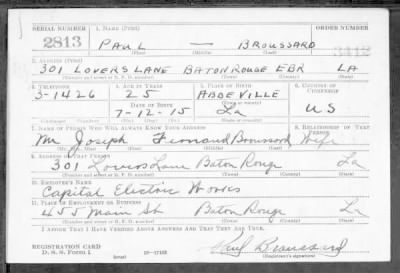 SERIAL NUMBER 1. NAME (Print) ORDER NUMBER
2813 PAUL — BROUSSARD 3442
(First) (Middle) (Last)
2. ADDRESS (Print)
301 LOVERS LANE BATON ROUGE EBR LA
(Number and street or R. F. D. number) (Town) (County) (State)
3. TELEPHONE 4. AGE IN YEARS 5. PLACE OF BIRTH 6. COUNTRY OF CITIZENSHIP
3-1426 25 ABBEVILLE
DATE OF BIRTH (Town or county)
7-12-15 La US
(Mo.) (Day) (Yr.) (State or country)
7. NAME OF PERSON WHO WILL ALWAYS KNOW YOUR ADDRESS 8. RELATIONSHIP OF THAT PERSON
Mr Joseph Broussard Wife
9. ADDRESS OF THAT PERSON
301 Lovers Lane Baton Rouge La
(Number and street or R. F. D. number) (Town) (County) (State)
10. EMPLOYER'S NAME
Capital Electric Works
11. PLACE OF EMPLOYMENT OR BUSINESS
455 Main St Baton Rouge La
(Number and street or R. F. D. number) (Town) (County) (State)
I AFFIRM THAT I HAVE VERIFIED ABOVE ANSWERS AND THAT THEY ARE TRUE.
REGISTRATION CARD
D. S. S. FORM 1 (over) 16—17105 Paul Broussard
(Registrant's signature)